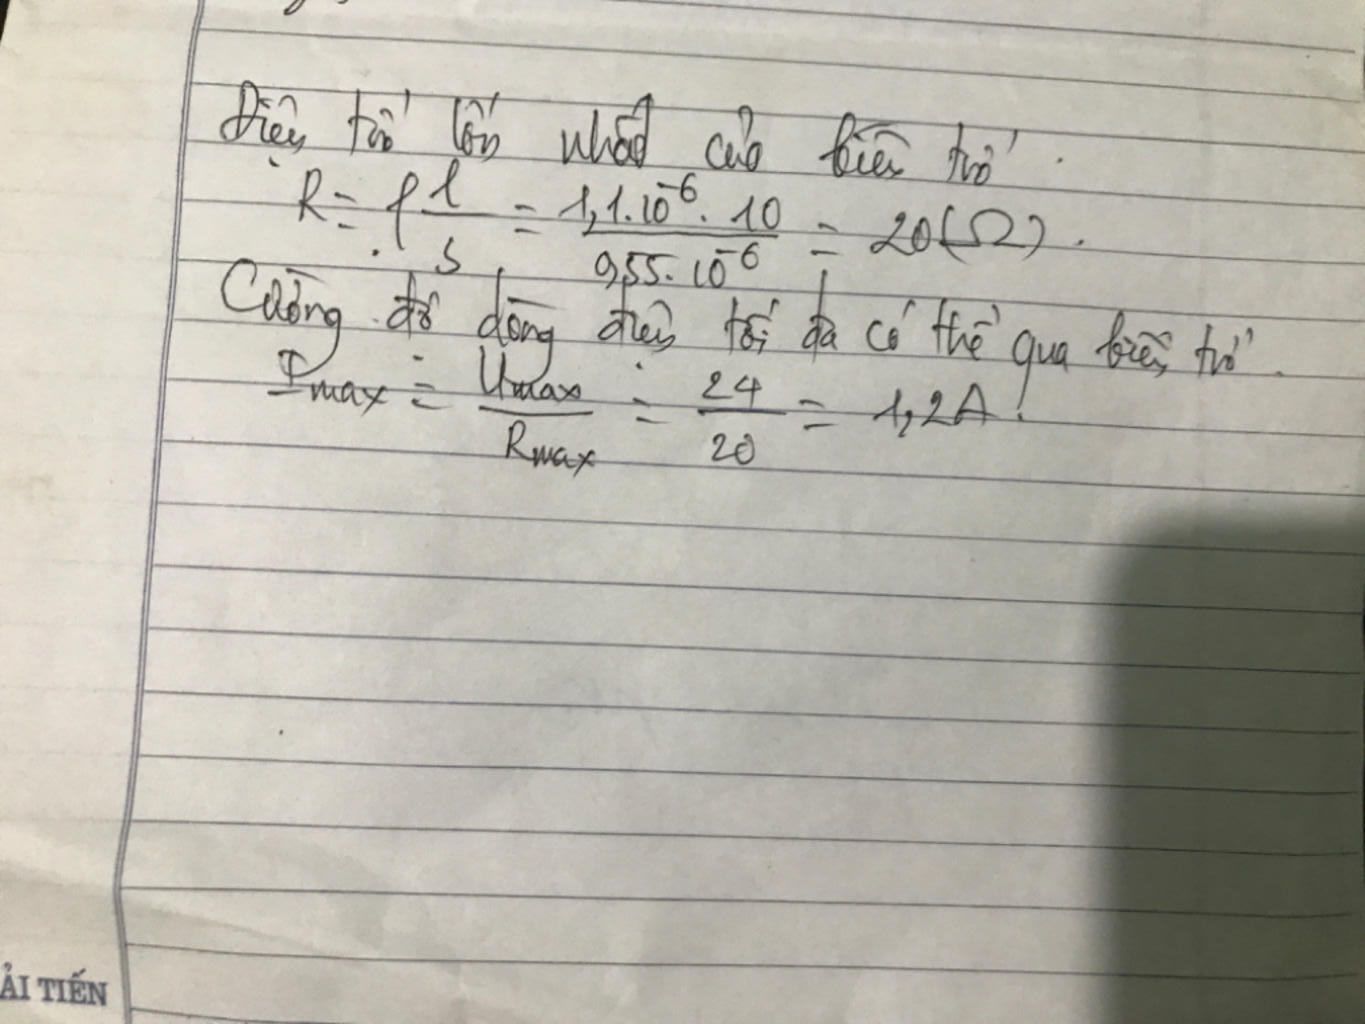 Điện trở lớn nhất của biến trở.
R = ρ l/S = 1,1.10^-6 . 10 / 0,55.10^-6 = 20 (Ω).
Cường độ dòng điện tối đa có thể qua biến trở.
Imax = Umax/Rmax = 24/20 = 1,2A.
ẢI TIẾN